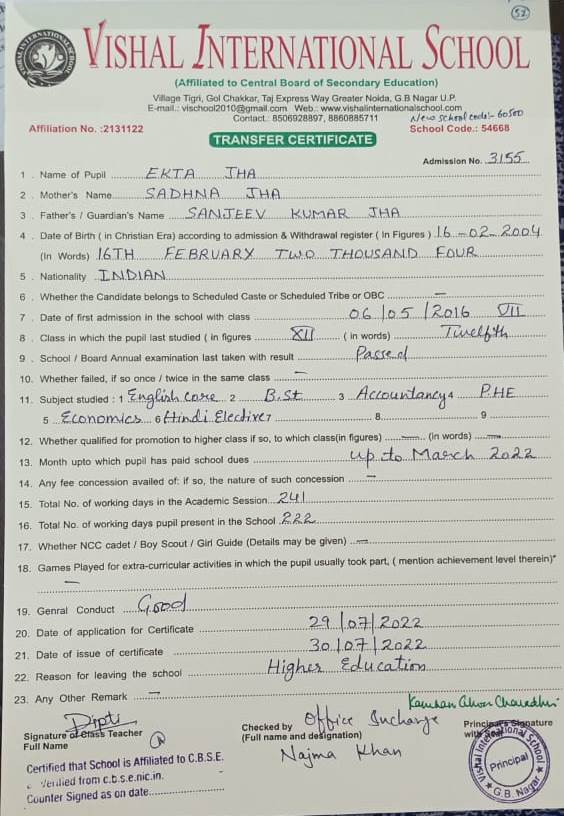 52
VISHAL INTERNATIONAL SCHOOL
(Affiliated to Central Board of Secondary Education)
Village Tigri, Gol Chakkar, Taj Express Way Greater Noida, G.B Nagar U.P.
E-mail.: vischool2010@gmail.com Web.: www.vishalinternationalschool.com
Contact.: 8506928897, 8860885711 New School code:- 60500
Affiliation No. :2131122 School Code.: 54668
TRANSFER CERTIFICATE
Admission No. 3155
1 . Name of Pupil EKTA JHA
2 . Mother's Name SADHNA JHA
3 . Father's / Guardian's Name SANJEEV KUMAR JHA
4 . Date of Birth ( in Christian Era) according to admission & Withdrawal register ( In Figures ) 16-02-2004
(In Words) 16TH FEBRUARY TWO THOUSAND FOUR
5 . Nationality INDIAN
6 . Whether the Candidate belongs to Scheduled Caste or Scheduled Tribe or OBC —
7 . Date of first admission in the school with class 06/05/2016 VII
8 . Class in which the pupil last studied ( in figures XII ( in words) Twelfth
9 . School / Board Annual examination last taken with result Passed
10. Whether failed, if so once / twice in the same class —
11. Subject studied : 1 English core 2 B.St 3 Accountancy 4 P.HE
5 Economics 6 Hindi Elective 7 8 9
12. Whether qualified for promotion to higher class if so, to which class(in figures) — (in words) —
13. Month upto which pupil has paid school dues up to March 2022
14. Any fee concession availed of: if so, the nature of such concession —
15. Total No. of working days in the Academic Session 241
16. Total No. of working days pupil present in the School 222
17. Whether NCC cadet / Boy Scout / Girl Guide (Details may be given) —
18. Games Played for extra-curricular activities in which the pupil usually took part, ( mention achievement level therein)*
—
19. Genral Conduct Good
20. Date of application for Certificate 29/07/2022
21. Date of issue of certificate 30/07/2022
22. Reason for leaving the school Higher Education
23. Any Other Remark —
Dipti
Signature of Class Teacher
Full Name
Checked by Office Incharge
(Full name and designation)
Najma Khan
Principal's Signature
with Seal
Vishal International School
Principal
G.B. Nagar
Certified that School is Affiliated to C.B.S.E.
Verified from c.b.s.e.nic.in.
Counter Signed as on date